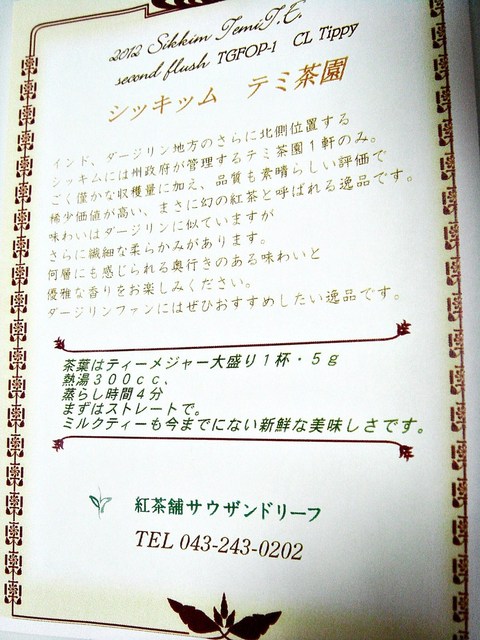 2012 Sikkim Temi T.E.
second flush TGFOP-1 CL Tippy
シッキッム テミ茶園
インド、ダージリン地方のさらに北側位置する
シッキムには州政府が管理するテミ茶園1軒のみ。
ごく僅かな収穫量に加え、品質も素晴らしい評価で
稀少価値が高い、まさに幻の紅茶と呼ばれる逸品です。
味わいはダージリンに似ていますが
さらに繊細な柔らかみがあります。
何層にも感じられる奥行きのある味わいと
優雅な香りをお楽しみください。
ダージリンファンにはぜひおすすめしたい逸品です。
茶葉はティーメジャー大盛り1杯・5g
熱湯300cc、
蒸らし時間4分
まずはストレートで。
ミルクティーも今までにない新鮮な美味しさです。
紅茶舗サウザンドリーフ
TEL 043-243-0202